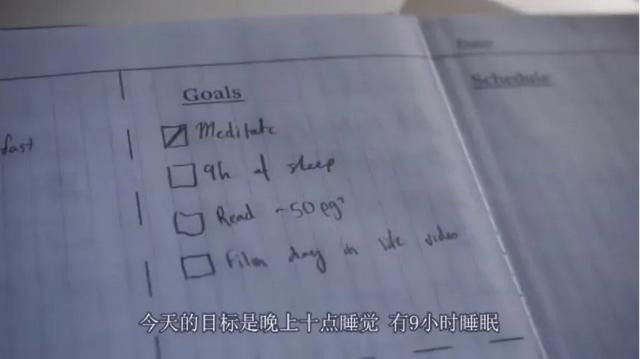 Date
Goals
Schedule
fast
Meditate
9h of sleep
Read ~50 pgs
Film day in life video
今天的目标是晚上十点睡觉 有9小时睡眠